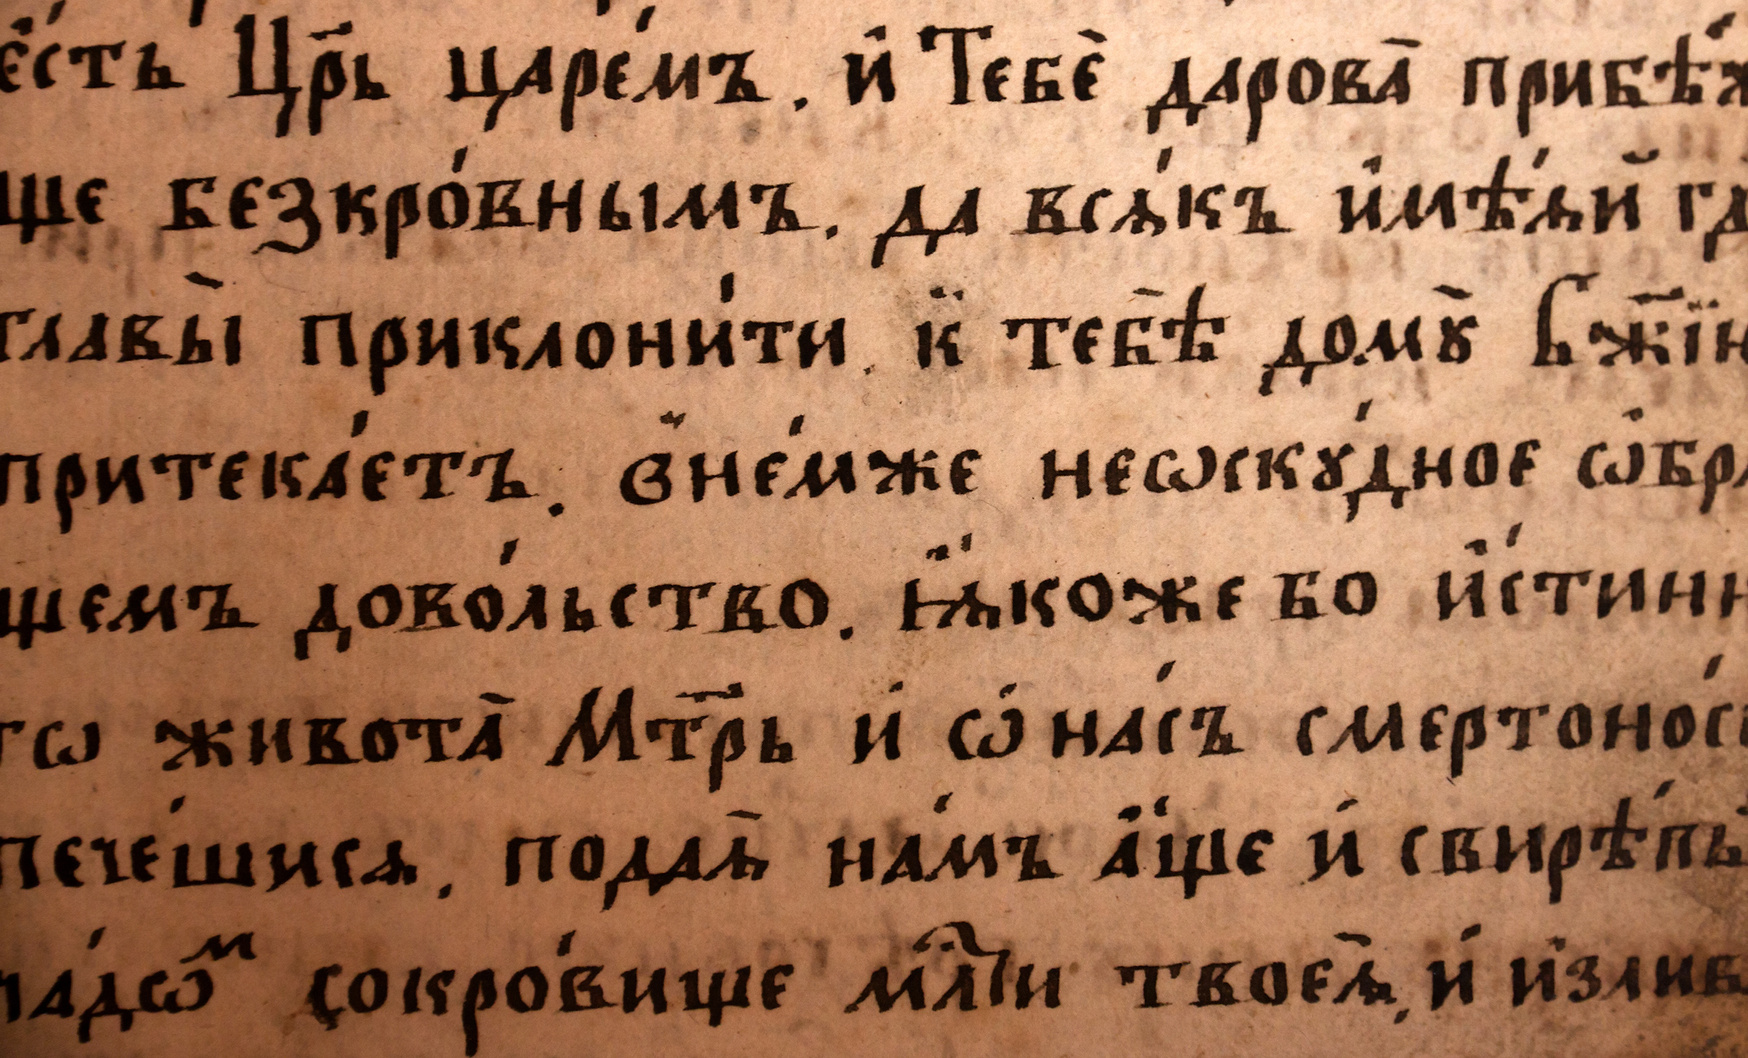 є҆́сть Цр҃ь царе́мъ. и҆ Тебѐ дарова̀ прибѣж
ще безкро́внымъ. да всѧ́къ и҆мѣ́ѧй гд
главы̀ приклони́ти. к̾ тебѣ̀ домꙋ̀ Бж҃їю
притека́етъ. в̾не́мже неѡскꙋ́дное ѡ҆бра
щемъ дово́льство. ꙗ҆́коже бо и҆́стинн
гѡ живота̀ Мт҃рь и҆ ѡ҆ на́съ смертоно́с
пече́шисѧ. подаѧ̀ на́мъ а҆́ще и҆ свирѣ́пы
ча́дѡⷨ сокро́вище млⷭ҇ти твоеѧ̀, и҆ и҆злив